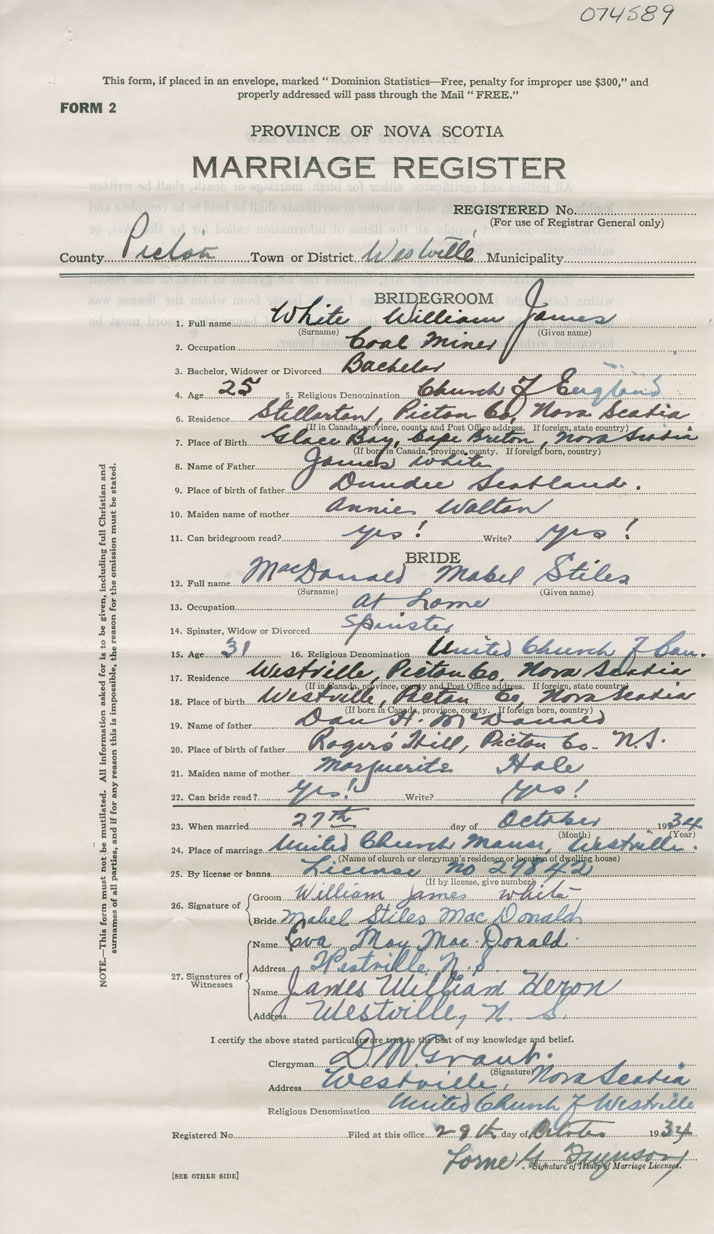 074589
This form, if placed in an envelope, marked "Dominion Statistics—Free, penalty for improper use $300," and
properly addressed will pass through the Mail "FREE."
FORM 2
PROVINCE OF NOVA SCOTIA
MARRIAGE REGISTER
REGISTERED No.
(For use of Registrar General only)
County Pictou Town or District Westville Municipality
BRIDEGROOM
1. Full name White William James
(Surname) (Given name)
2. Occupation Coal Miner
3. Bachelor, Widower or Divorced Bachelor
4. Age 25 5. Religious Denomination Church of England
6. Residence Stellarton, Pictou Co, Nova Scotia
(If in Canada, province, county and Post Office address. If foreign, state country)
7. Place of Birth Glace Bay, Cape Breton, Nova Scotia
(If born in Canada, province, county. If foreign born, country)
8. Name of Father James White
9. Place of birth of father Dundee Scotland.
10. Maiden name of mother Annie Walton
11. Can bridegroom read? Yes! Write? Yes!
BRIDE
12. Full name MacDonald Mabel Stiles
(Surname) (Given name)
13. Occupation at home
14. Spinster, Widow or Divorced Spinster
15. Age 31 16. Religious Denomination United Church of Can.
17. Residence Westville, Pictou Co, Nova Scotia
(If in Canada, province, county and Post Office address. If foreign, state country)
18. Place of birth Westville, Pictou Co, Nova Scotia
(If born in Canada, province, county. If foreign born, country)
19. Name of father Dan H. McDonald
20. Place of birth of father Rogers Hill, Pictou Co. N.S.
21. Maiden name of mother Marguerite Hale
22. Can bride read? Yes! Write? Yes!
23. When married 27th day of October 1934
(Month) (Year)
24. Place of marriage United Church Manse, Westville.
(Name of church or clergyman's residence or location of dwelling house)
25. By license or banns License no 29842
(If by license, give number)
26. Signature of Groom William James White
Bride Mabel Stiles MacDonald
27. Signatures of Witnesses Name Eva May MacDonald.
Address Westville N.S.
Name James William Heron
Address Westville, N. S.
I certify the above stated particulars are true to the best of my knowledge and belief.
Clergyman D. M. Grant.
(Signature)
Address Westville, Nova Scotia
Religious Denomination United Church of Westville
Registered No. Filed at this office 29th day of October 1934
Lorne G. Ferguson
Signature of Issuer of Marriage Licenses.
[SEE OTHER SIDE]
NOTE.—This form must not be mutilated. All information asked for is to be given, including full Christian and
surnames of all parties, and if for any reason this is impossible, the reason for the omission must be stated.